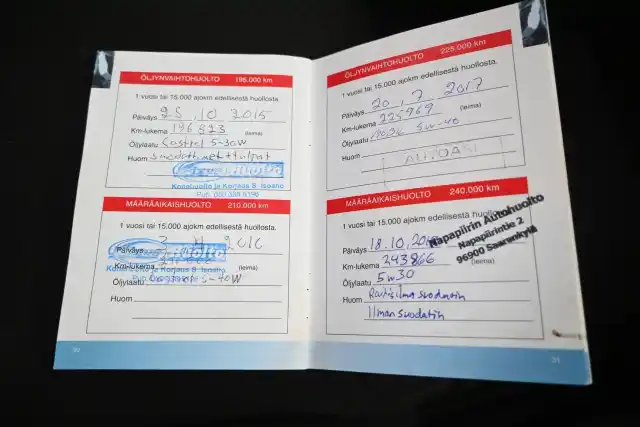 ÖLJYNVAIHTOHUOLTO 195.000 km
1 vuosi tai 15.000 ajokm edellisestä huollosta.
Päiväys 25.10 2015
Km-lukema 196 523 (leima)
Öljylaatu Castrol 5-30W
Huom
Konehuolto ja Korjaus S. Isoaho
MÄÄRÄAIKAISHUOLTO 210.000 km
1 vuosi tai 15.000 ajokm edellisestä huollosta.
Päiväys
Konehuolto ja Korjaus S. Isoaho
Km-lukema (leima)
Öljylaatu
Huom
30
ÖLJYNVAIHTOHUOLTO 225.000 km
1 vuosi tai 15.000 ajokm edellisestä huollosta.
Päiväys 20.7 2017
Km-lukema 225969 (leima)
Öljylaatu 5w-40
Huom
AUTOASI
MÄÄRÄAIKAISHUOLTO 240.000 km
1 vuosi tai 15.000 ajokm edellisestä huollosta.
Päiväys 18.10.
Km-lukema 243866 (leima)
Öljylaatu 5w30
Huom Raitisilmasuodatin
Ilmansuodatin
Napapiirin Autohuolto
Napapiirintie 2
96900 Saarenkylä
31